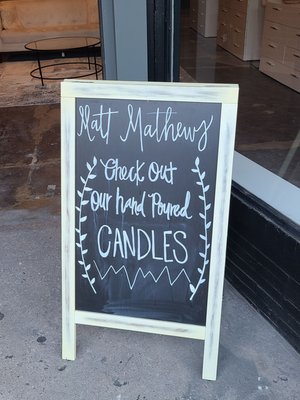 Matt Mathews
Check out
our hand Poured
CANDLES